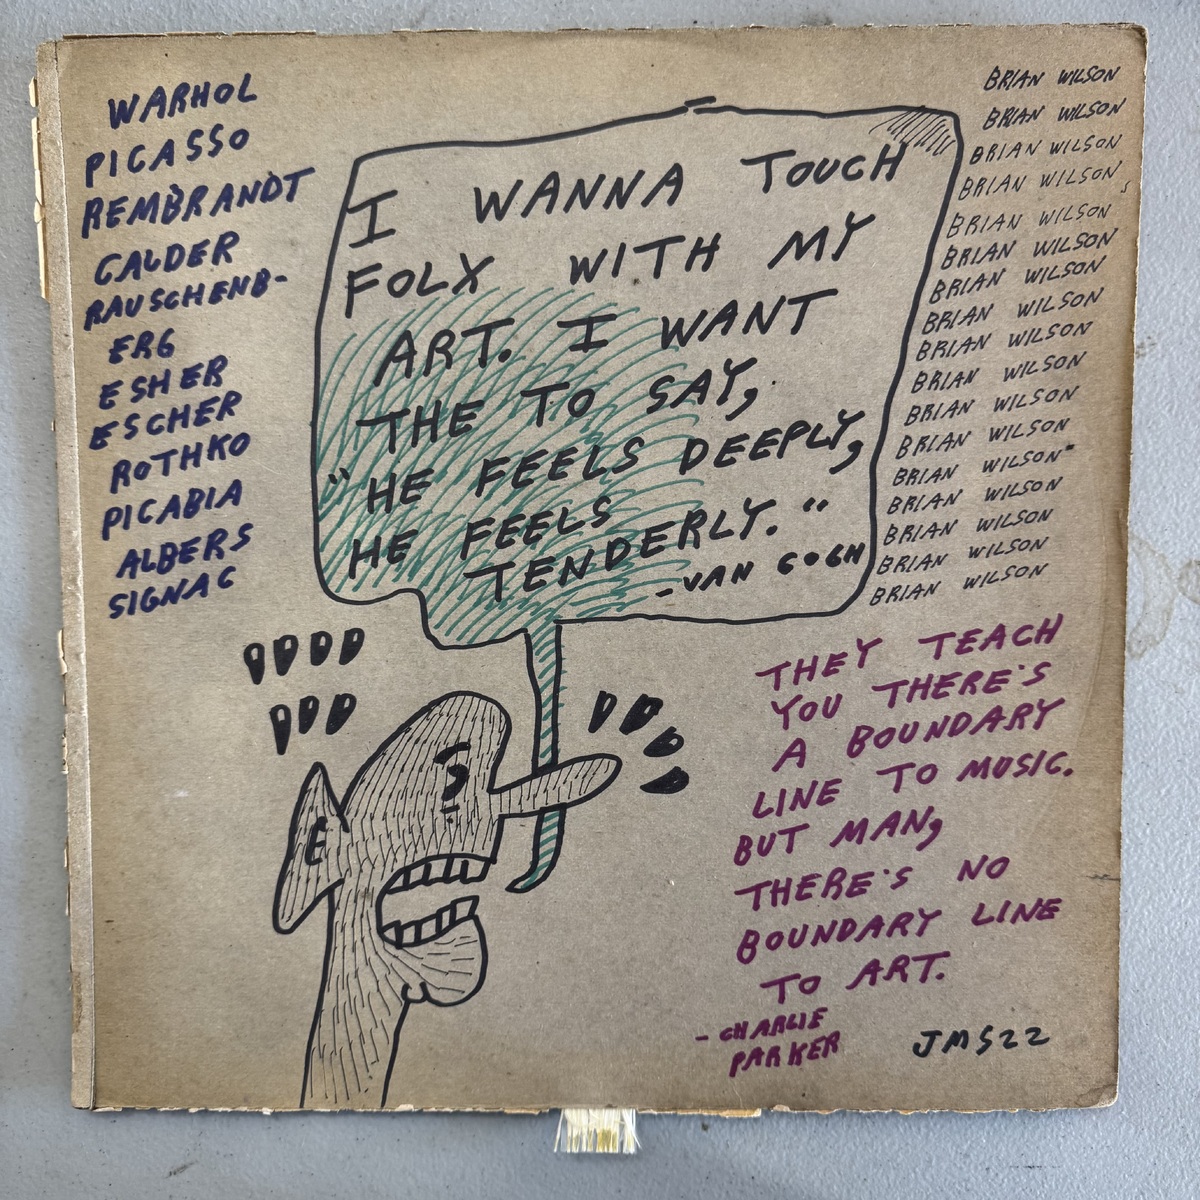 WARHOL
PICASSO
REMBRANDT
CALDER
RAUSCHENB-
ERG
ESHER
ESCHER
ROTHKO
PICABIA
ALBERS
SIGNAC
I WANNA TOUCH
FOLX WITH MY
ART. I WANT
THE TO SAY,
"HE FEELS DEEPLY,
HE FEELS
TENDERLY."
-VAN GOGH
BRIAN WILSON
BRIAN WILSON
BRIAN WILSON
BRIAN WILSON
BRIAN WILSON
BRIAN WILSON
BRIAN WILSON
BRIAN WILSON
BRIAN WILSON
BRIAN WILSON
BRIAN WILSON
BRIAN WILSON
BRIAN WILSON
BRIAN WILSON
BRIAN WILSON
BRIAN WILSON
BRIAN WILSON
THEY TEACH
YOU THERE'S
A BOUNDARY
LINE TO MUSIC.
BUT MAN,
THERE'S NO
BOUNDARY LINE
TO ART.
- CHARLIE
PARKER
JMS22